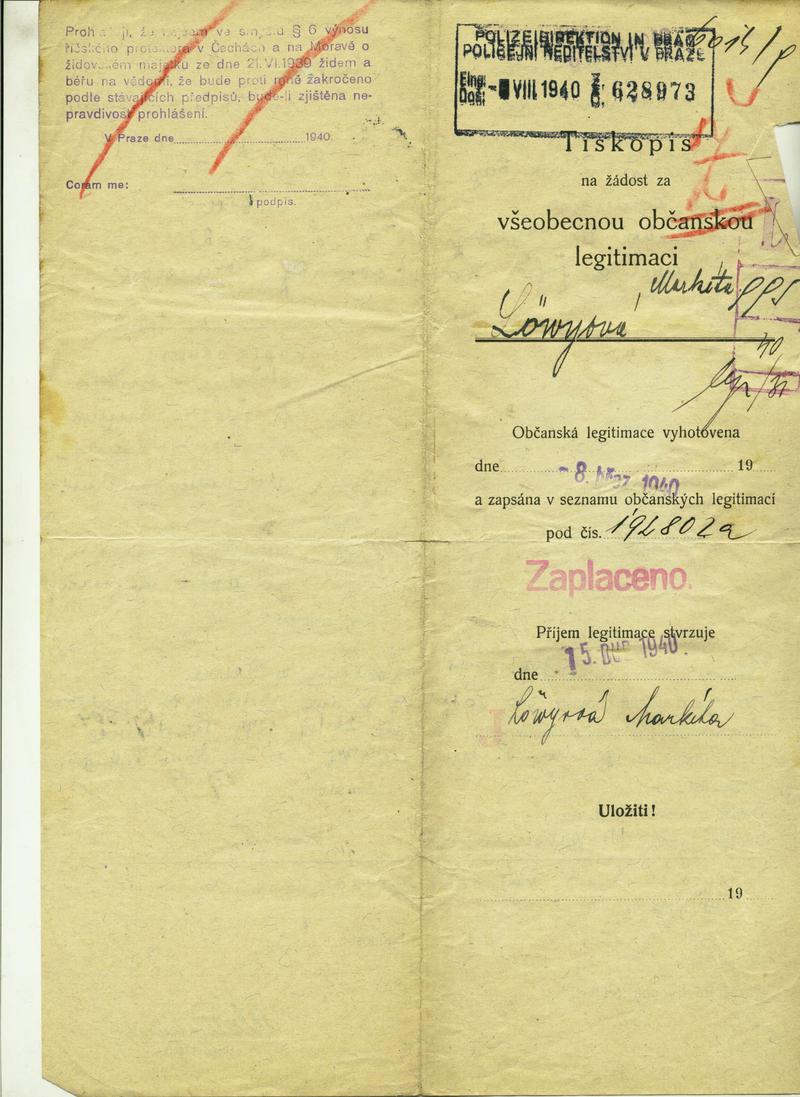 Proh ji, že nejsem ve smyslu § 6 výnosu
říšského protektora v Čechách a na Moravě o
židovském majetku ze dne 21. VI. 1939 židem a
béřu na vědomí, že bude proti mně žakročeno
podle stávajících předpisů, bude-li zjištěna ne-
pravdivost prohlášení.
V Praze dne 1940.
Coram me:
podpis.
POLIZEIDIREKTION IN PRAG
POLICEJNÍ ŘEDITELSTVÍ V PRAZE
Eing.
Doš.
VIII 1940
628973
Tiskopis
na žádost za
všeobecnou občanskou
legitimaci
Löwyová, Markéta
Občanská legitimace vyhotovena
dne - 8. 1940 19
a zapsána v seznamu občanských legitimací
pod čís. 192802a
Zaplaceno.
Příjem legitimace stvrzuje
dne 15. 1940.
J
Löwyová Markéta
Uložiti!
19